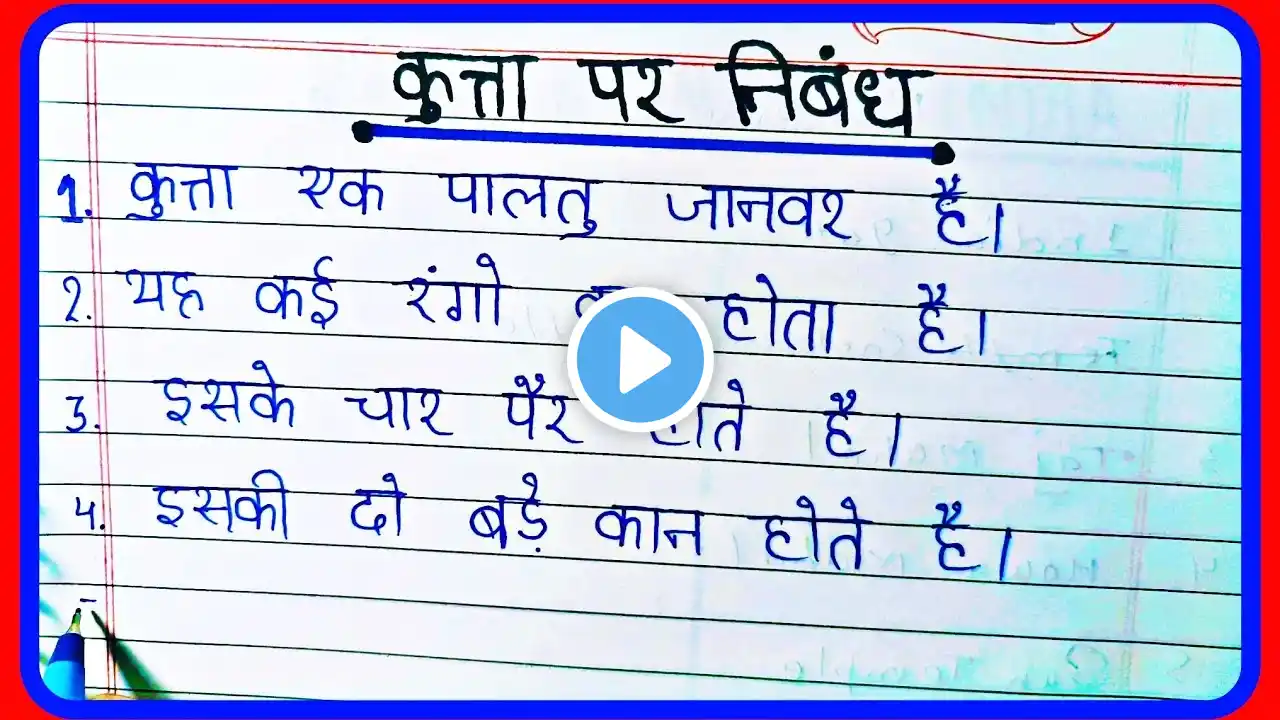 कुत्ता पर निबंध
1. कुत्ता एक पालतु जानवर है।
2. यह कई रंगो होता है।
3. इसके चार पैर होते है।
4. इसकी दो बड़े कान होते है।